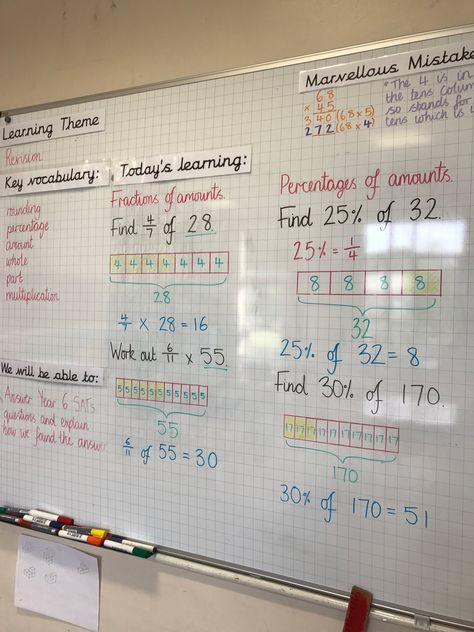 Learning Theme
Revision
Key vocabulary:
rounding
percentage
amount
whole
part
multiplication
We will be able to:
Answer Year 6 SATs
questions and explain
how we found the answer
Today's learning:
Fractions of amounts.
Find 4/7 of 28.
4 4 4 4 4 4 4
28
4/7 × 28 = 16
Work out 6/11 × 55.
5 5 5 5 5 5 5 5 5 5 5
55
6/11 of 55 = 30
Marvellous Mistake
68
× 45
340 (68 × 5)
272 (68 × 4)
"The 4 is in
the tens colum
so stands for
tens which is 4
Percentages of amounts.
Find 25% of 32.
25% = 1/4
8 8 8 8
32
25% of 32 = 8
Find 30% of 170.
17 17 17 17 17 17 17 17 17 17
170
30% of 170 = 51